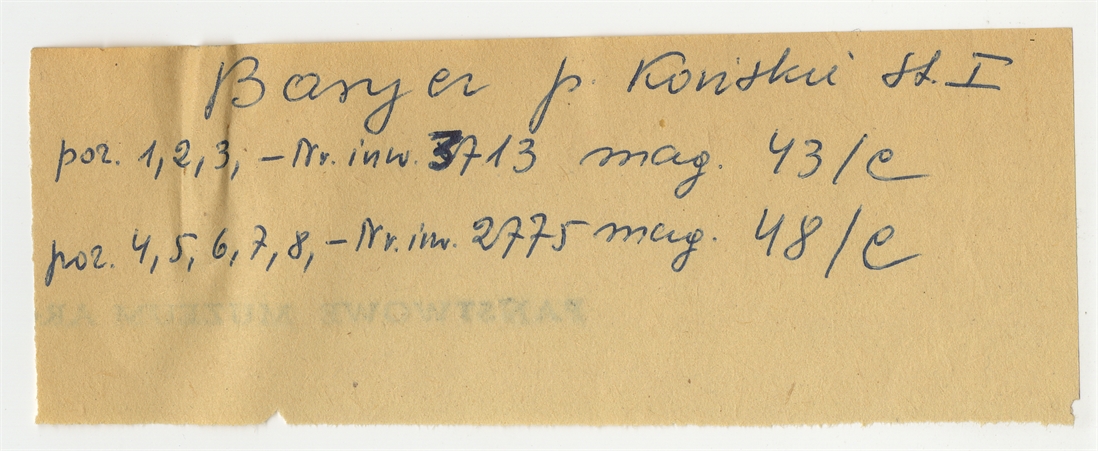 Baryer p. Końskie St. I
poz. 1,2,3, – Nr. inw. 3713 mag. 43/C
poz. 4,5,6,7,8, – Nr. inw. 2775 mag. 48/C
PAŃSTWOWE MUZEUM AR